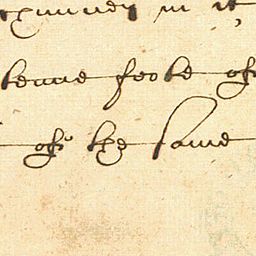 in it
tenne foote of
of the same